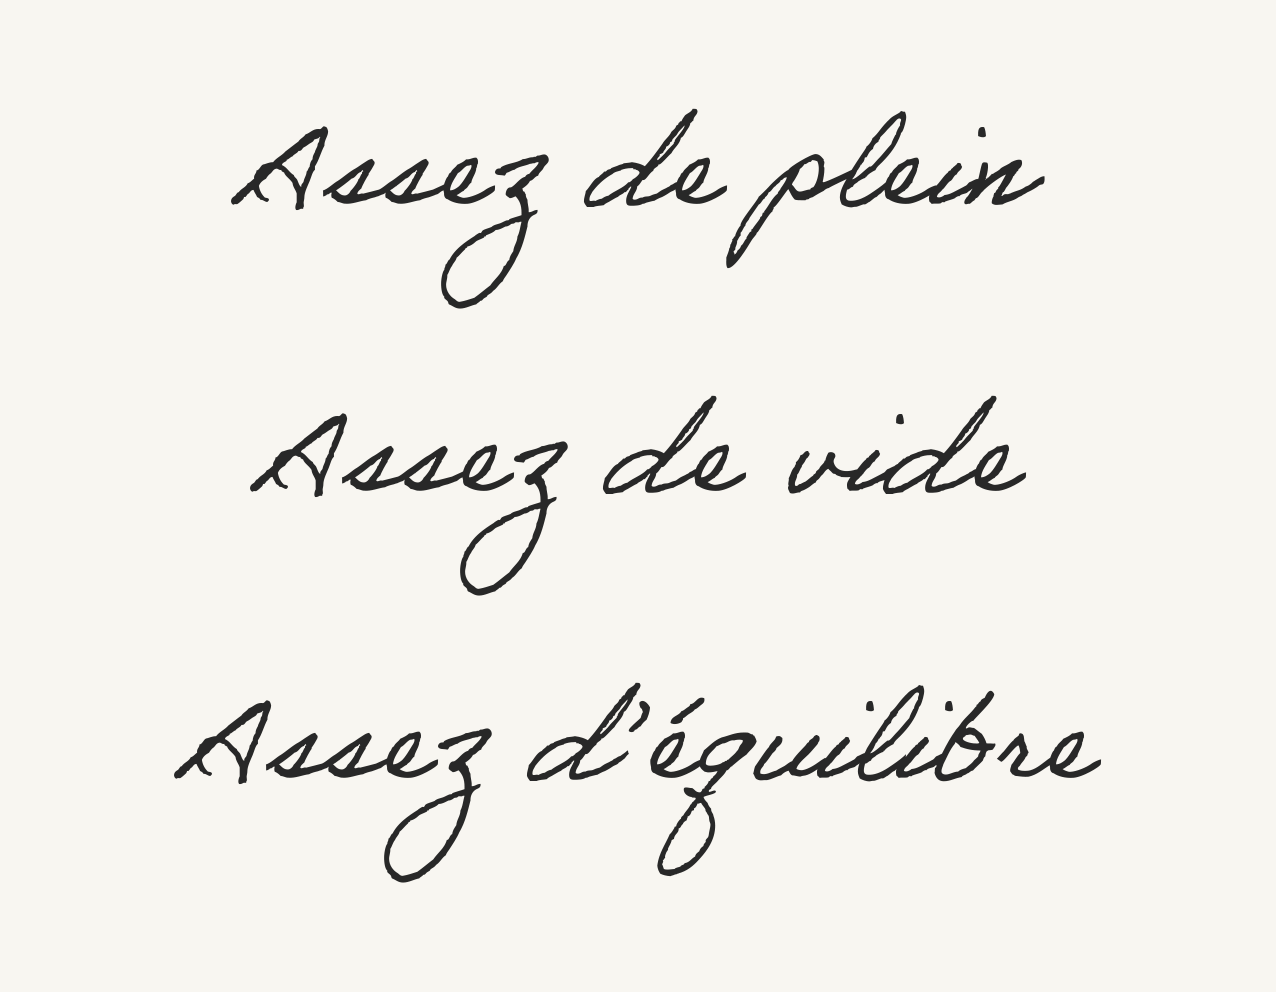 Assez de plein
Assez de vide
Assez d'équilibre